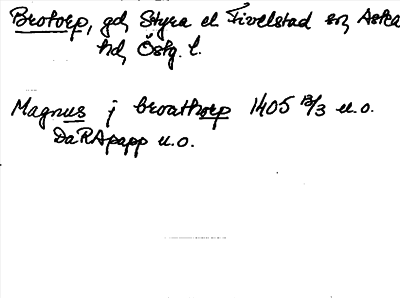 Brotorp, gd, Styra el. Fivelstad sn, Aska
hd, Östg. l.
Magnus j broathorp 1405 13/3 u.o.
DaRApapp u.o.